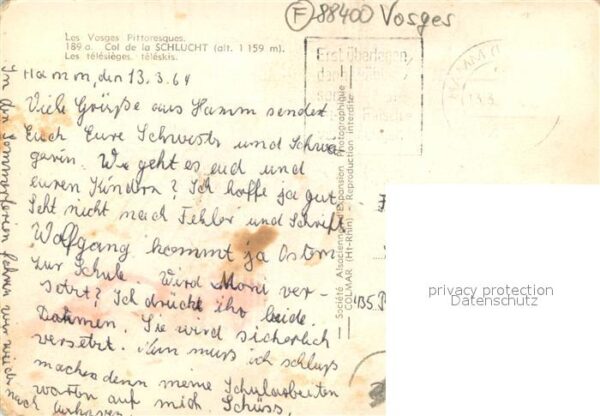 F 88400 Vosges
Les Vosges Pittoresques.
189 a. Col de la SCHLUCHT (alt. 1 159 m).
Les télésièges. téléskis.
Erst überlegen,
dann
Hamm, den 13.3.64
Viele Grüße aus Hamm sendet
Euch Eure Schwester und Schwä-
gerin. Wie geht es euch und
euren Kindern? Ich hoffe ja gut.
Seht nicht nach Fehler und Schrift.
Wolfgang kommt ja Ostern
zur Schule. Wird Moni ver-
setzt? Ich drücke ihr beide
Daumen. Sie wird sicherlich
versetzt. Nun muss ich schluß
machen denn meine Schularbeiten
warten auf mich. Schüss,
In den Sommerferien fahren wir wieder
nach
Société Alsacienne d'Expansion Photographique
COLMAR (Ht-Rhin) Reproduction interdite
HAMM
13.3.
privacy protection
Datenschutz